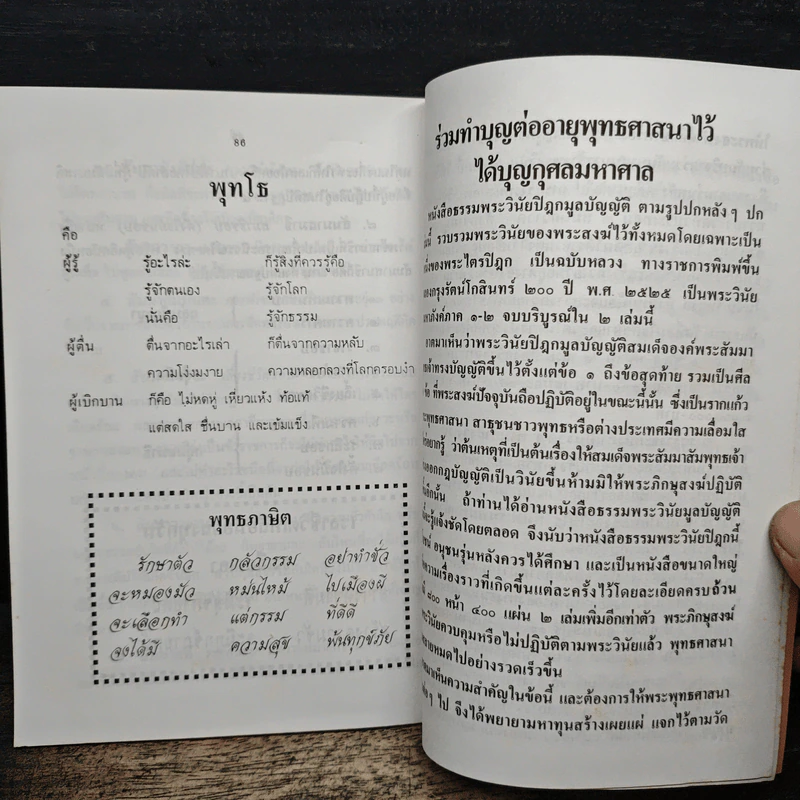 86
พุทโธ
คือ
ผู้รู้ รู้อะไรล่ะ ก็รู้สิ่งที่ควรรู้คือ
รู้จักตนเอง รู้จักโลก
นั่นคือ รู้จักธรรม
ผู้ตื่น ตื่นจากอะไรเล่า ก็ตื่นจากความหลับ
ความโง่งมงาย ความหลอกลวงที่โลกครอบงำ
ผู้เบิกบาน ก็คือ ไม่หดหู่ เหี่ยวแห้ง ท้อแท้
แต่สดใส ชื่นบาน และเข้มแข็ง
พุทธภาษิต
รักษาตัว กลัวกรรม อย่าทำชั่ว
จะหมองมัว หม่นไหม้ ไปเมืองผี
จะเลือกทำ แต่กรรม ที่ดีดี
จงได้มี ความสุข พ้นทุกข์ภัย
ร่วมทำบุญต่ออายุพุทธศาสนาไว้
ได้บุญกุศลมหาศาล
หนังสือธรรมพระวินัยปิฎกมูลบัญญัติ ตามรูปปกหลังๆ ปก
นี้ รวบรวมพระวินัยของพระสงฆ์ไว้ทั้งหมดโดยเฉพาะเป็น
ของพระไตรปิฎก เป็นฉบับหลวง ทางราชการพิมพ์ขึ้น
ของกรุงรัตน์โกสินทร์ ๒๐๐ ปี พ.ศ ๒๕๒๕ เป็นพระวินัย
ภาค ๑-๒ จบบริบูรณ์ใน ๒ เล่มนี้
มาเห็นว่าพระวินัยปิฎกมูลบัญญัติสมเด็จองค์พระสัมมา
เจ้าทรงบัญญัติขึ้นไว้ตั้งแต่ข้อ ๑ ถึงข้อสุดท้าย รวมเป็นศีล
ข้อ ที่พระสงฆ์ปัจจุบันถือปฏิบัติอยู่ในขณะนี้นั้น ซึ่งเป็นรากแก้ว
พุทธศาสนา สาธุชนชาวพุทธหรือต่างประเทศมีความเลื่อมใส
อยากรู้ ว่าต้นเหตุที่เป็นต้นเรื่องให้สมเด็จพระสัมมาสัมพุทธเจ้า
ออกกฎบัญญัติเป็นวินัยขึ้นห้ามมิให้พระภิกษุสงฆ์ปฏิบัติ
นั้น ถ้าท่านได้อ่านหนังสือธรรมพระวินัยมูลบัญญัติ
จะรู้แจ้งชัดโดยตลอด จึงนับว่าหนังสือธรรมพระวินัยปิฎกนี้
อนุชนรุ่นหลังควรได้ศึกษา และเป็นหนังสือขนาดใหญ่
ความเรื่องราวที่เกิดขึ้นแต่ละครั้งไว้โดยละเอียดครบถ้วน
๘๐๐ หน้า ๔๐๐ แผ่น ๒ เล่มเพิ่มอีกเท่าตัว พระภิกษุสงฆ์
วินัยควบคุมหรือไม่ปฏิบัติตามพระวินัยแล้ว พุทธศาสนา
หมดไปอย่างรวดเร็วขึ้น
มาเห็นความสำคัญในข้อนี้ และต้องการให้พระพุทธศาสนา
ๆ ไป จึงได้พยายามหาทุนสร้างเผยแผ่ แจกไว้ตามวัด